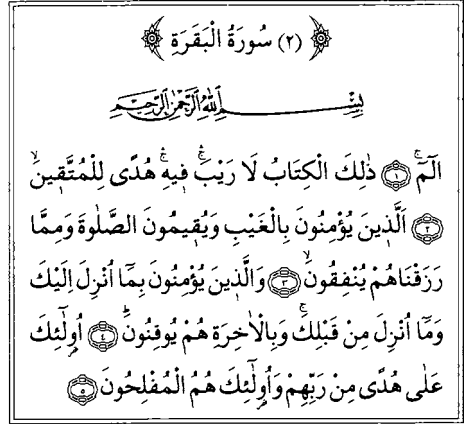 ﴿٢﴾ سُورَةُ الْبَقَرَةِ
بِسْمِ اللّٰهِ الرَّحْمٰنِ الرَّحِيمِ
الٓمٓ ۚ ﴿١﴾ ذٰلِكَ الْكِتَابُ لَا رَيْبَ ۛ فِيهِ ۛ هُدًى لِلْمُتَّقِينَ ۙ
﴿٢﴾ اَلَّذِينَ يُؤْمِنُونَ بِالْغَيْبِ وَيُقِيمُونَ الصَّلٰوةَ وَمِمَّا
رَزَقْنَاهُمْ يُنْفِقُونَ ۙ ﴿٣﴾ وَالَّذِينَ يُؤْمِنُونَ بِمَٓا اُنْزِلَ اِلَيْكَ
وَمَٓا اُنْزِلَ مِنْ قَبْلِكَ ۚ وَبِالْاٰخِرَةِ هُمْ يُوقِنُونَ ۜ ﴿٤﴾ اُولٰٓئِكَ
عَلٰى هُدًى مِنْ رَبِّهِمْ وَاُولٰٓئِكَ هُمُ الْمُفْلِحُونَ ﴿٥﴾